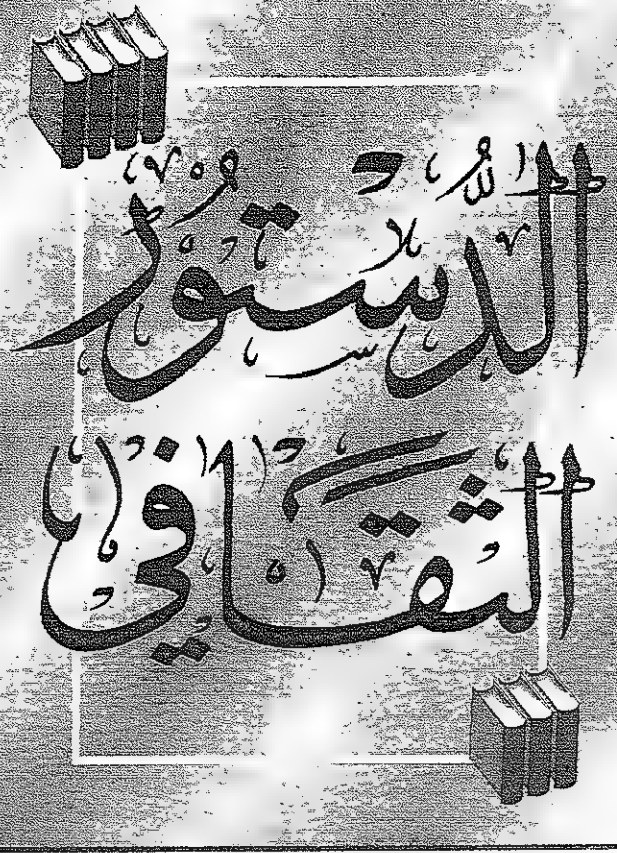 الدُّستُورُ
الثقَافي